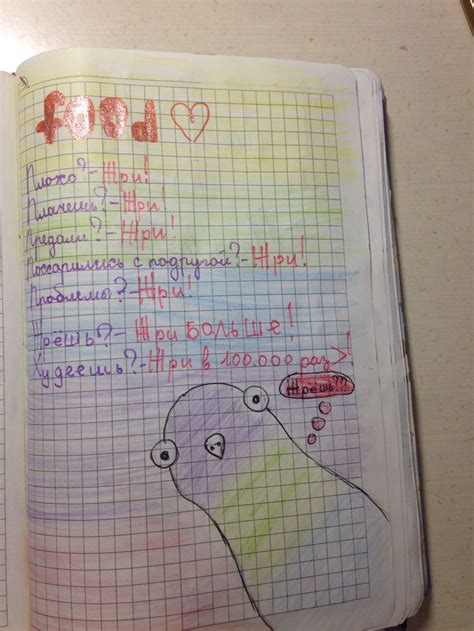 food
Плохо?-Жри!
Плачешь?-Жри!
Предали?-Жри!
Поссорились с подругой?-Жри!
Проблемы?-Жри!
Жрёшь?-Жри больше!
Худеешь?-Жри в 100.000 раз>!
Жрёшь?!?